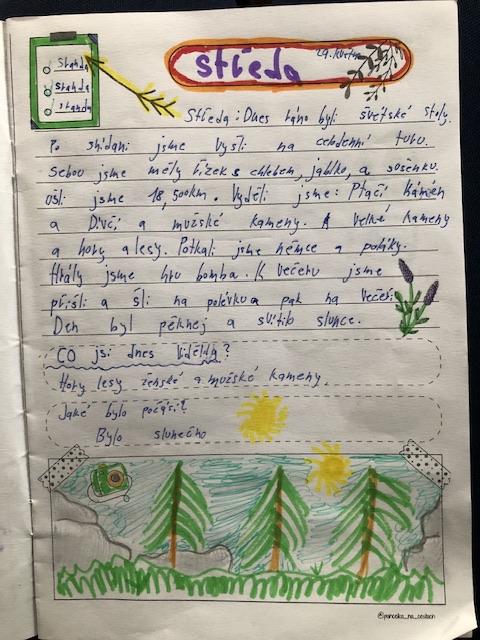 Standa
Standa
Standa
středa
29. května
Středa: Dnes ráno byli světské stoly.
Po snídani jsme vyšli na celodenní túru.
Sebou jsme měly řízek s chlebem, jablko, a sušenku.
Ušli jsme 18,500km. Vyděli jsme: Ptačí kámen
a Dívčí a mužské kameny. A velké kameny
a hory a lesy. Potkali jsme němce a poláky.
Hráli jsme hru bomba. K večeru jsme
přišli a šli na polévku a pak na večeři.
Den byl pěknej a svítilo slunce.
CO jsi dnes viděl/a?
Hory lesy ženské a mužské kameny.
Jaké bylo počasí?
Bylo slunečno
@pancelka_na_cestach